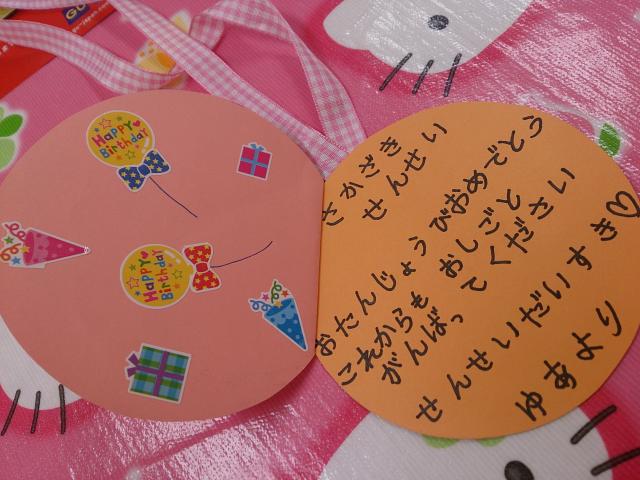 Happy
Birthday
Happy
Birthday
さかざき
せんせい
おたんじょうびおめでとう
これからも おしごと
がんばってください
せんせいだいすき♡
ゆあより